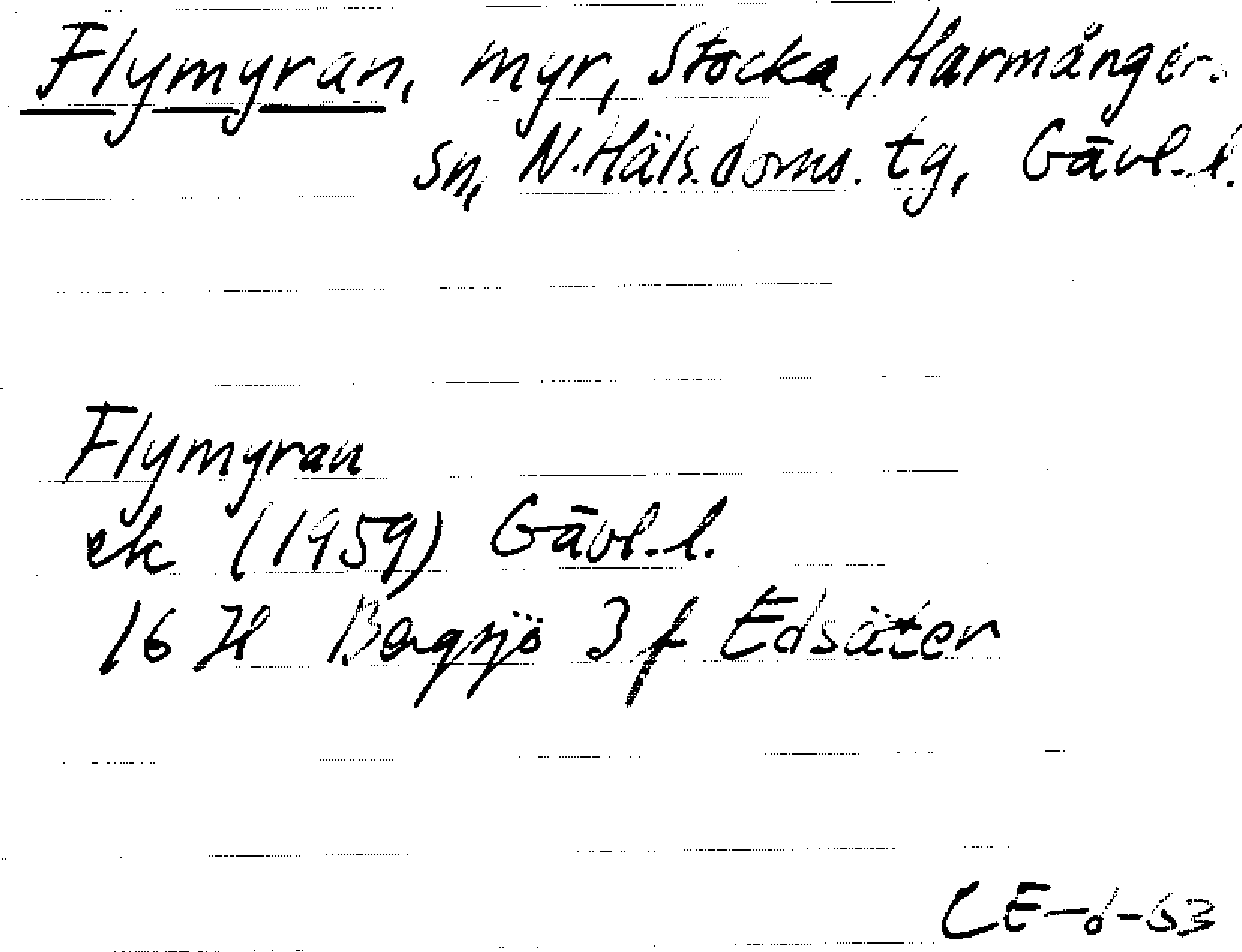 Flymyran, myr, Stocka, Harmånger.
sn, N.Häls.doms.tg, Gävl.l.
Flymyran
ek (1959) Gävl.l.
16 H Bergsjö 3 f Edsäter
CE-d-63